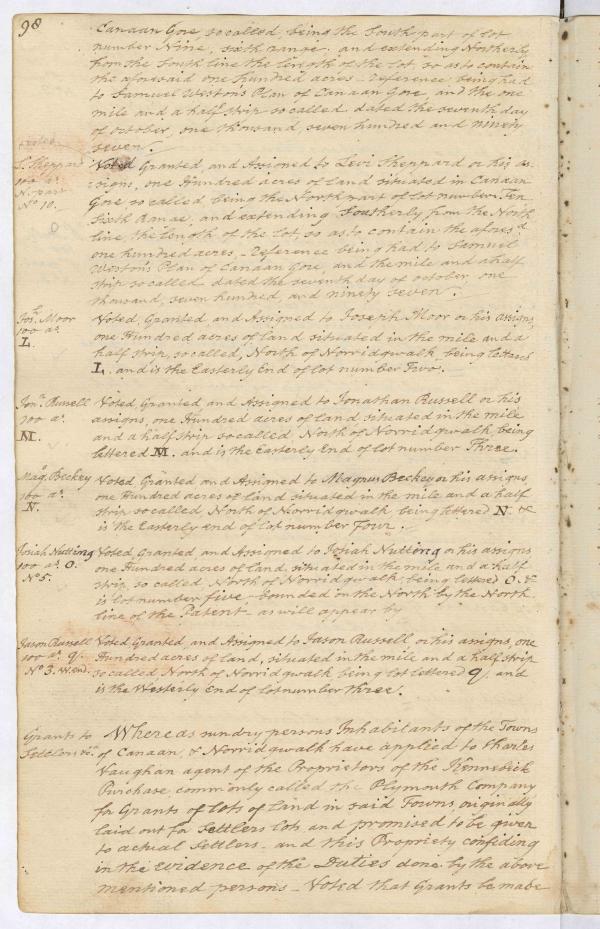 98
Canaan Gore, so called, being the South part of lot
number Nine, sixth range, and extending Northerly
from the South line the length of the lot, so as to contain
the aforesaid one hundred acres - reference being had
to Samuel Weston's Plan of Canaan Gore, and the one
mile and a half strip so called dated the seventh day
of october, one thousand, seven hundred and ninety
seven.
L. Sheppard
100 as.
N. part
No. 10.
Voted Granted, and Assigned to Levi Sheppard or his as-
signs, one Hundred acres of land situated in Canaan
Gore so called, being the North part of lot number Ten
Sixth Range, and extending Southerly, from the North
line, the length of the lot, so as to contain the aforesd.
one hundred acres, - reference being had to Samuel
Weston's Plan of Canaan Gore, and the mile and a half
strip so called dated the seventh day of october one
thousand, seven hundred, and ninety seven.
Josh. Moor
100 as.
L.
Voted, Granted, and Assigned to Joseph Moor or his assigns,
one Hundred acres of land situated in the mile and a
half strip, so called, North of Norridgwalk, being lettered
L. and is the Easterly End of lot number Two.
Jonn. Russell
100 as.
M.
Voted, Granted, and Assigned to Jonathan Russell or his
assigns, one Hundred acres of land situated in the mile
and a half strip so called North of Norridgwalk, being
lettered M. and is the Easterly End of lot number Three.
Mags. Beckey
100 as.
N.
Voted, Granted and Assigned to Magnus Beckey or his assigns
one Hundred acres of land situated in the mile and a half
strip so called North of Norridgwalk being lettered N. &
is the Easterly end of lot number four.
Josiah Nutting
100 as. O.
No. 5.
Voted, Granted, and Assigned to Josiah Nutting or his assigns
one Hundred acres of land, situated in the mile and a half
strip, so called North of Norridgwalk being lettered O. &
is lot number five - bounded on the North by the North
line of the Patent as will appear by
Jason Russell
100 as. Q.
No. 3. W. end.
Voted, Granted, and Assigned to Jason Russell or his assigns, one
Hundred acres of land, situated in the mile and a half strip
so called North of Norridgwalk being lot lettered Q. and
is the Westerly End of lot number three.
Grants to
Settlers &c.
Whereas sundry persons Inhabitants of the Towns
of Canaan, & Norridgwalk have applied to Charles
Vaughan agent of the Proprietors of the Kennebeck
Purchase commonly called the Plymouth Company
for Grants of lots of Land in said Towns originally
laid out for Settlers lots, and promised to be given
to actual Settlers - and this Propriety confiding
in the evidence of the Duties done by the above
mentioned persons - Voted that Grants be made